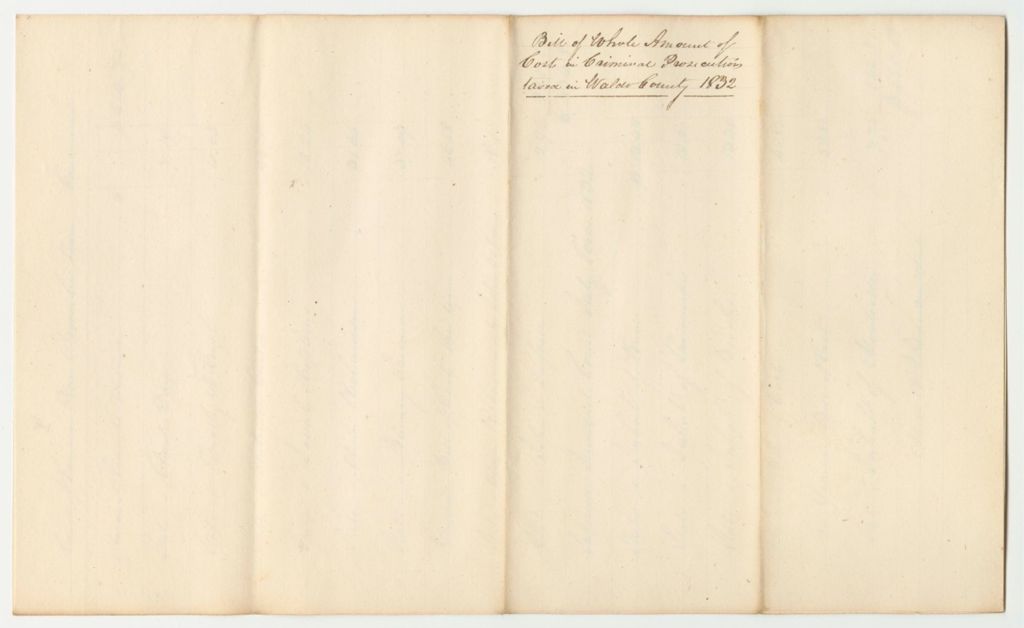 Bill of Whole Amount of
Cost in Criminal Prosecutions
taxed in Waldo County 1832